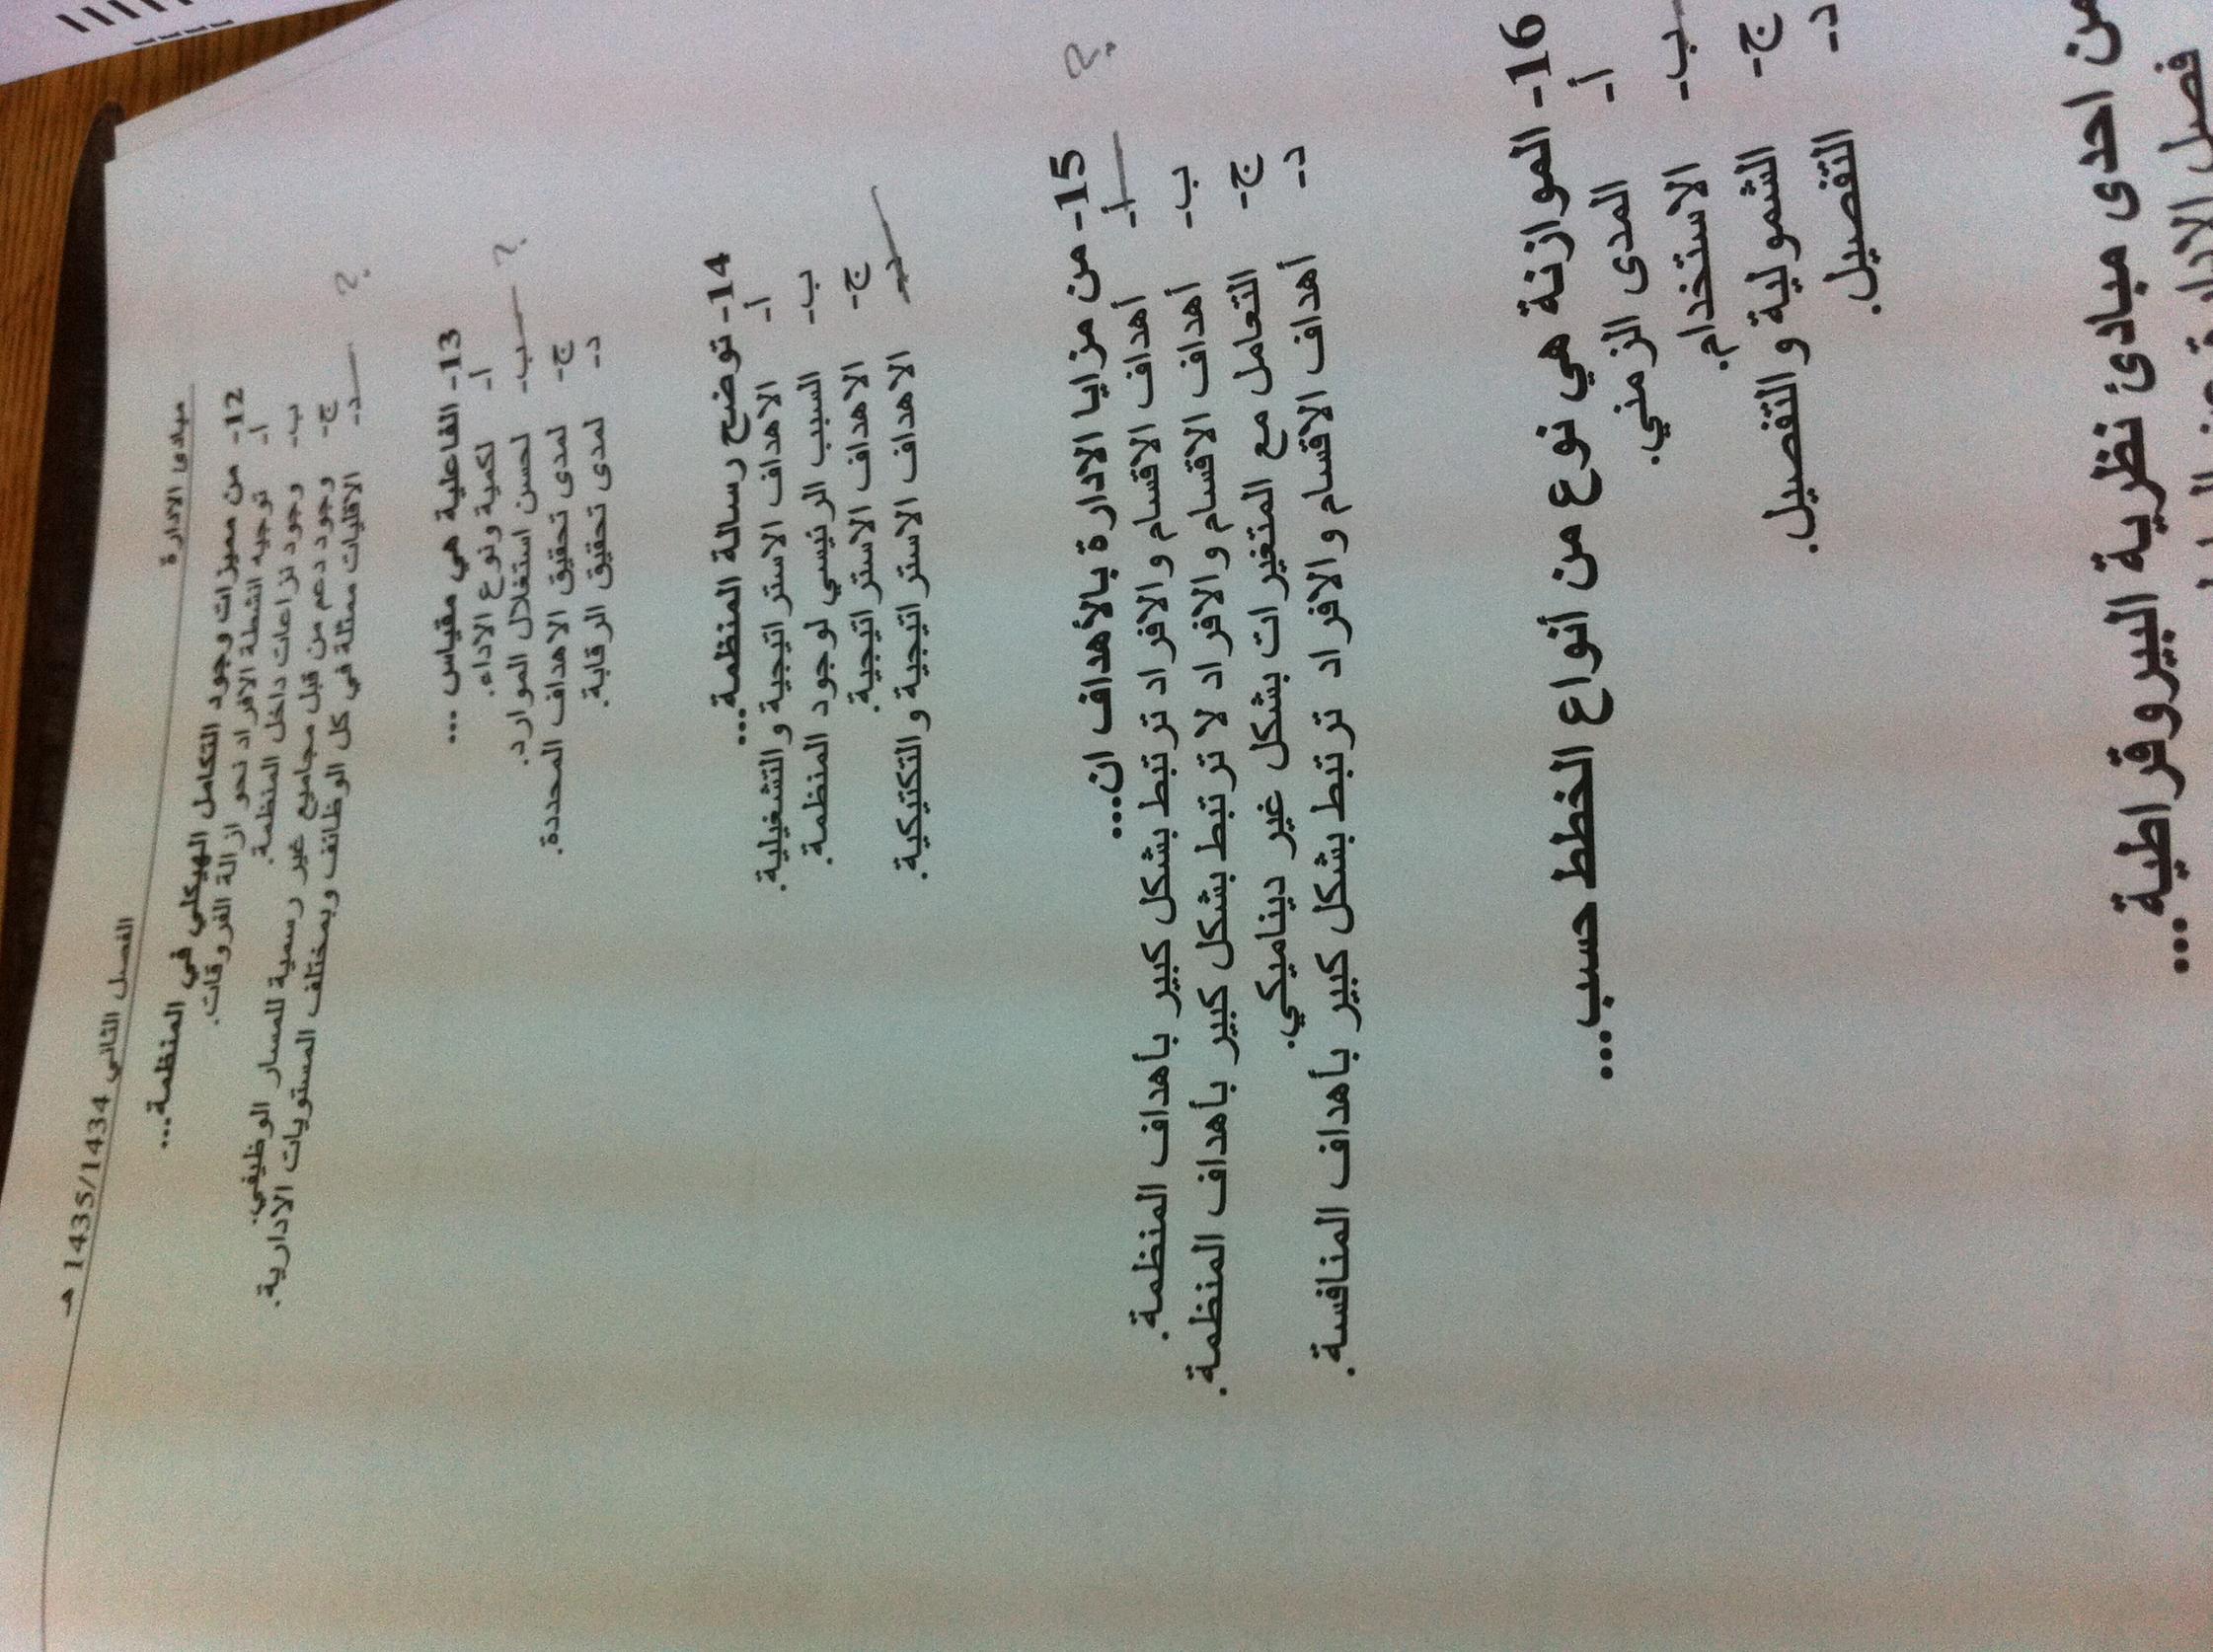 مبادئ الادارة
الفصل الثاني 1435/1434 هـ
12- من مميزات وجود التكامل الهيكلي في المنظمة...
أ- توجيه انشطة الافراد نحو ازالة الفروقات.
ب- وجود نزاعات داخل المنظمة.
ج- وجود دعم من قبل مجاميع غير رسمية للمسار الوظيفي.
د- الاقليات ممثلة في كل الوظائف وبمختلف المستويات الادارية.
؟
13- الفاعلية هي مقياس ...
أ- لكمية ونوع الاداء.
ب- لحسن استغلال الموارد.
؟
ج- لمدى تحقيق الاهداف المحددة.
د- لمدى تحقيق الرقابة.
14- توضح رسالة المنظمة...
أ- الاهداف الاستراتيجية والتشغيلية.
ب- السبب الرئيسي لوجود المنظمة.
ج- الاهداف الاستراتيجية.
د- الاهداف الاستراتيجية والتكتيكية.
؟
15- من مزايا الادارة بالأهداف ان...
أ- أهداف الاقسام والافراد ترتبط بشكل كبير بأهداف المنظمة.
ب- أهداف الاقسام والافراد لا ترتبط بشكل كبير بأهداف المنظمة.
ج- التعامل مع المتغيرات بشكل غير ديناميكي.
د- أهداف الاقسام والافراد ترتبط بشكل كبير بأهداف المنافسة.
16- الموازنة هي نوع من أنواع الخطط حسب...
أ- المدى الزمني.
ب- الاستخدام.
ج- الشمولية والتفصيل.
د- التفصيل.
من احدى مبادئ نظرية البيروقراطية...
فصل الادارة عن